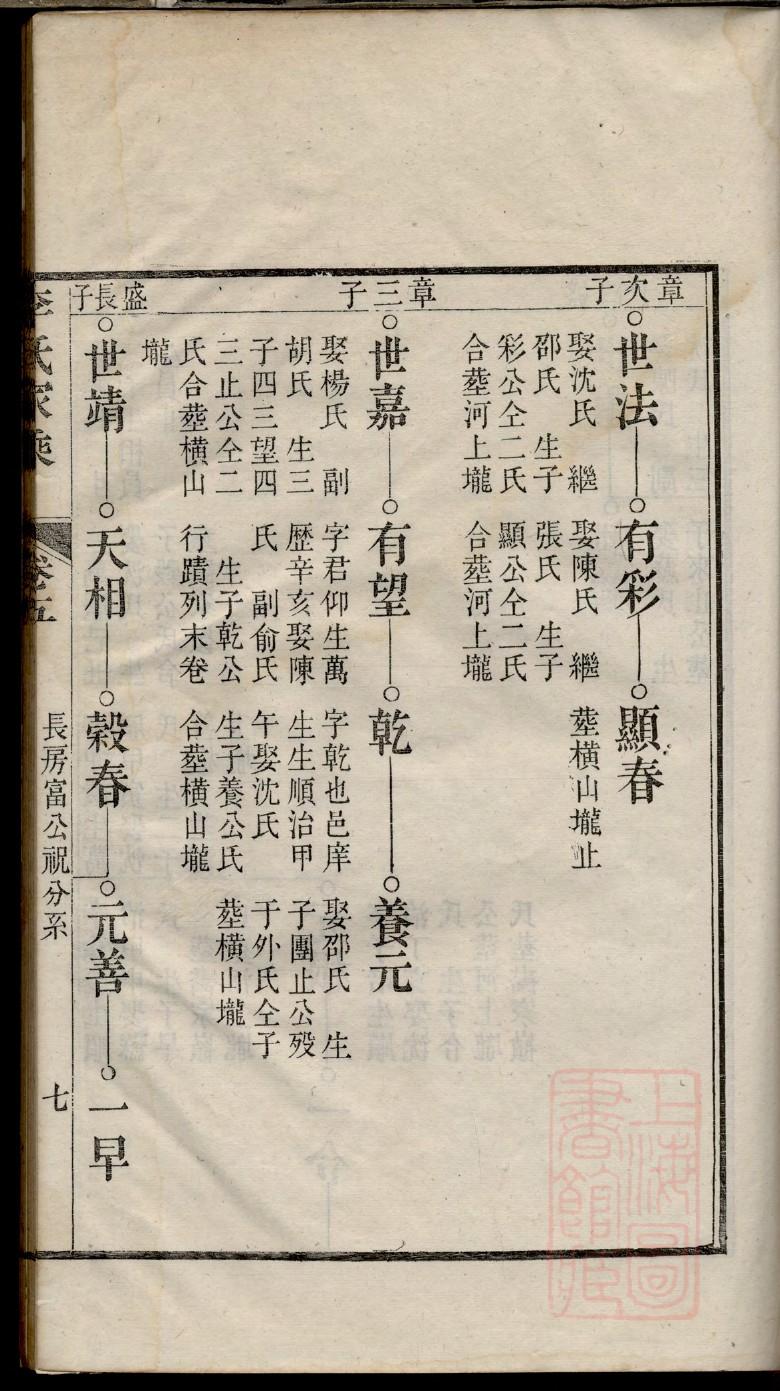 章次子
世法
娶沈氏　繼
邵氏　生子
彩公仝二氏
合塟河上壠
有彩
娶陳氏　繼
張氏　生子
顯公仝二氏
合塟河上壠
顯春
塟橫山壠止
章三子
世嘉
娶楊氏　副
胡氏　生三
子四三望四
三止公仝二
氏合塟橫山
壠
有望
字君仰生萬
歷辛亥娶陳
氏　副俞氏
生子乾公
行蹟列末卷
乾
字乾也邑庠
生生順治甲
午娶沈氏
生子養公氏
合塟橫山壠
養元
娶邵氏　生
子團止公歿
于外氏仝子
塟橫山壠
盛長子
世靖
天相
榖春
元善
一早
李氏家乘
卷五
長房富公祝分系
七
上海圖書館藏